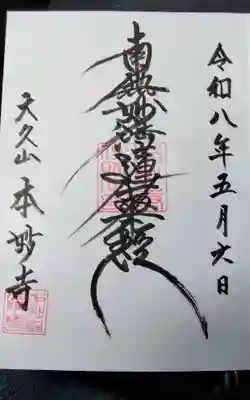 令和八年五月六日
南無妙法蓮華経
天久山 本妙寺